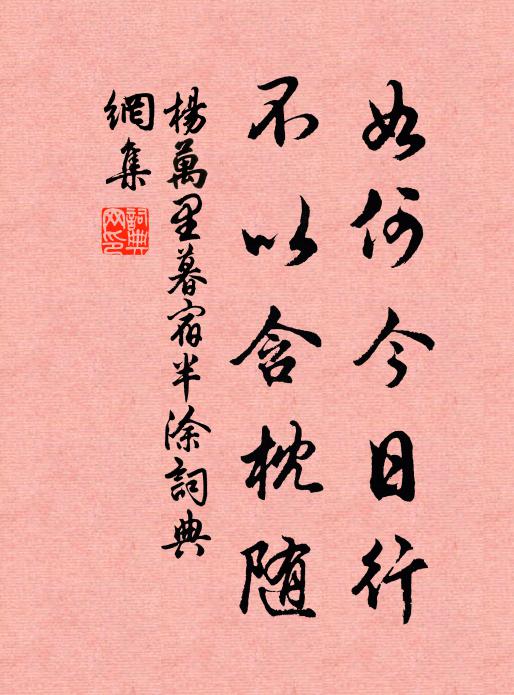 如何今日行
不以含枕随
楊萬里暮宿半涂詞典
網集
詞典網印